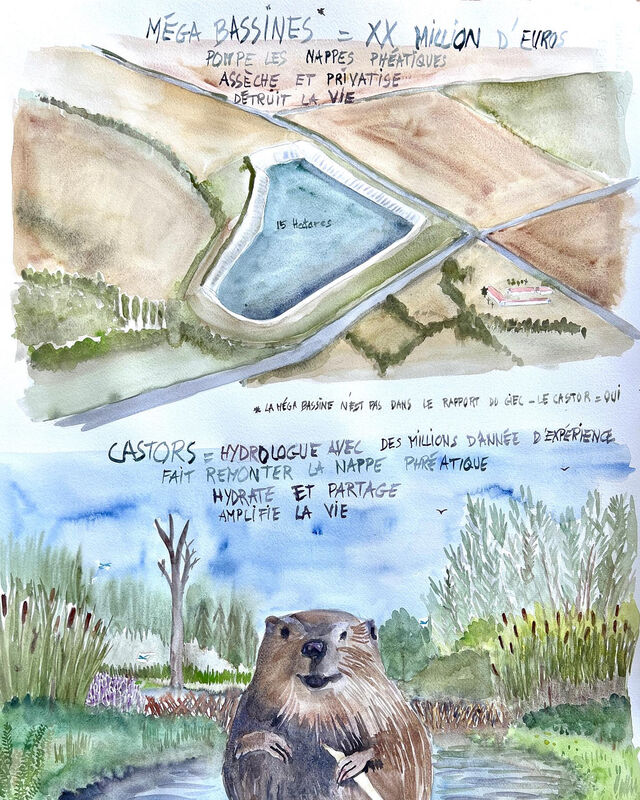 MÉGA BASSINES = XX MILLION D'EUROS
POMPE LES NAPPES PHÉATIQUES
ASSÈCHE ET PRIVATISE
DÉTRUIT LA VIE
15 Hectares
* LA MÉGA BASSINE N'EST PAS DANS LE RAPPORT DU GIEC - LE CASTOR = OUI
CASTORS = HYDROLOGUE AVEC DES MILLIONS D'ANNÉE D'EXPÉRIENCE
FAIT REMONTER LA NAPPE PHRÉATIQUE
HYDRATE ET PARTAGE
AMPLIFIE LA VIE